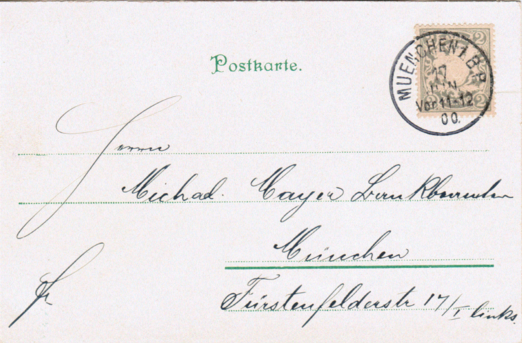 Postkarte.
2
MUENCHEN 1 B.P.
27
Vor 11-12
00.
2
Herrn
Michael Mayer Bankbeamten
München
Fürstenfelderstr 17/I links.
Fr